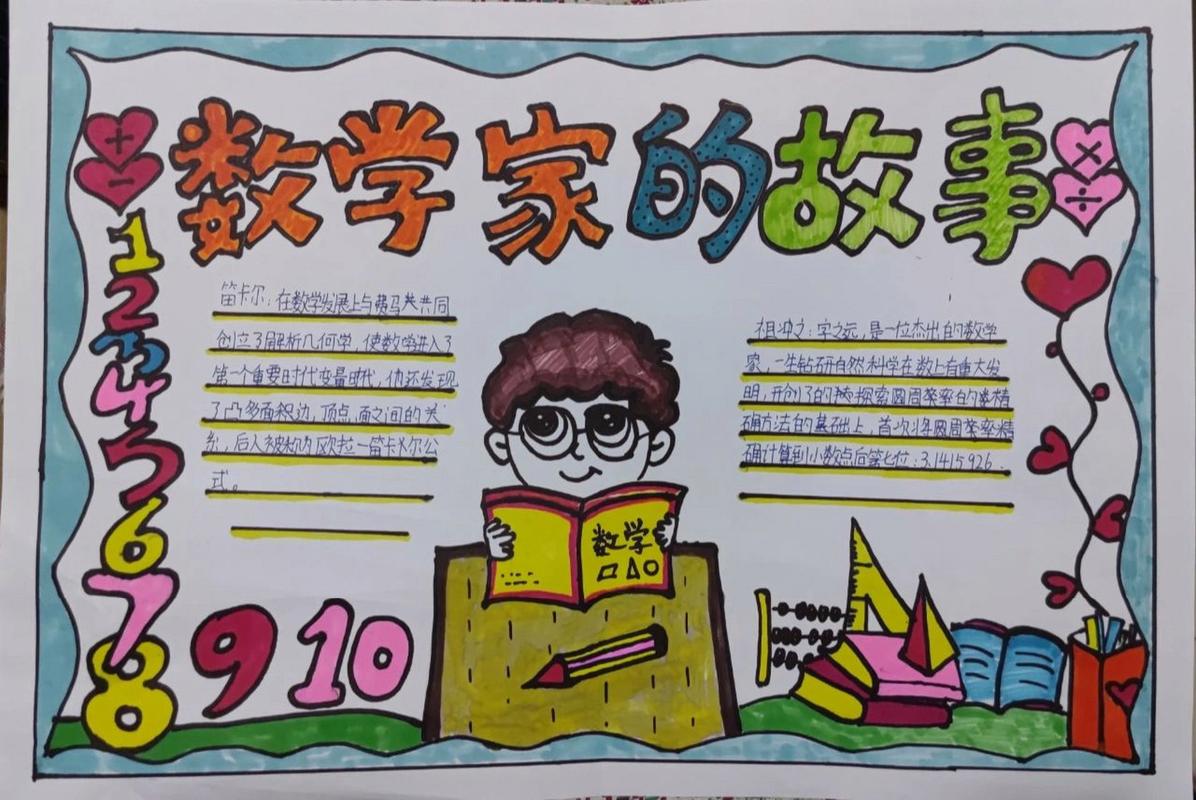 数学家的故事
+
-
×
÷
1
2
3
4
5
6
7
8
9
10
笛卡尔：在数学发展上与费马共同
创立了解析几何学，使数学进入了
第一个重要时代变量时代，他还发现
了凸多面积边，顶点，面之间的关
系，后人被称为欧拉一笛卡尔公
式。
祖冲之：字文远，是一位杰出的数学
家，一生钻研自然科学在数上有重大发
明，开创了的探索圆周率的精
确方法的基础上，首次将圆周率精
确计算到小数点后第七位：3.1415926.
数学